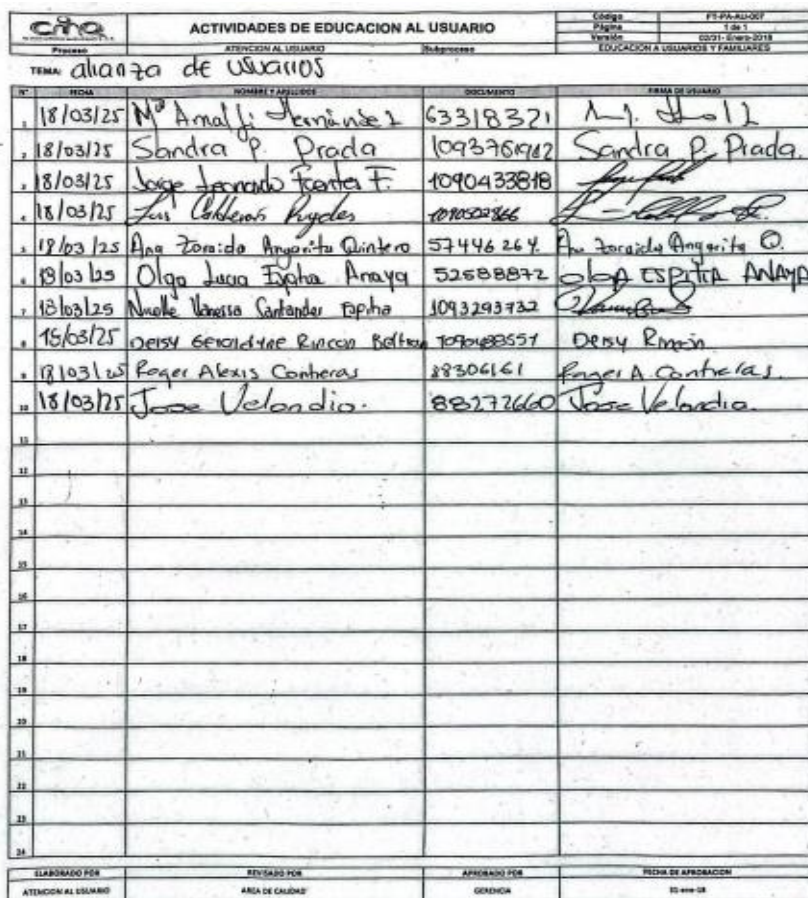 cmo
ACTIVIDADES DE EDUCACION AL USUARIO
Código FT-PA-AU-007
Página 1 de 1
Versión 02/31- Enero-2018
Proceso ATENCION AL USUARIO Subproceso EDUCACION A USUARIOS Y FAMILIARES
TEMA: alianza de usuarios
N° FECHA NOMBRE Y APELLIDOS DOCUMENTO FIRMA DE USUARIO
1 18/03/25 Mª Amalfi Hernández 63318321
2 18/03/25 Sandra P. Prada 1093761942 Sandra P. Prada.
3 18/03/25 Jorge Leonardo Fuentes F. 1090433818
4 18/03/25 Luis Calderon 1090502866
5 18/03/25 Ana Zoraida Angarita Quintero 57446264 Ana Zoraida Angarita Q.
6 18/03/25 Olga Lucia Espitia Anaya 52688872 OLGA ESPITIA ANAYA
7 18/03/25 Vanessa Santander Espitia 1093293732
8 15/03/25 Deisy Geraldyne Rincon Beltran 1090488557 Deisy Rincón
9 18/03/25 Roger Alexis Contreras 88306161 Roger A. Contreras.
10 18/03/25 Jose Velandia. 88272660 Jose Velandia.
11
12
13
14
15
16
17
18
19
20
21
22
23
24
ELABORADO POR REVISADO POR APROBADO POR FECHA DE APROBACION
ATENCION AL USUARIO AREA DE CALIDAD GERENCIA 31-ene-18